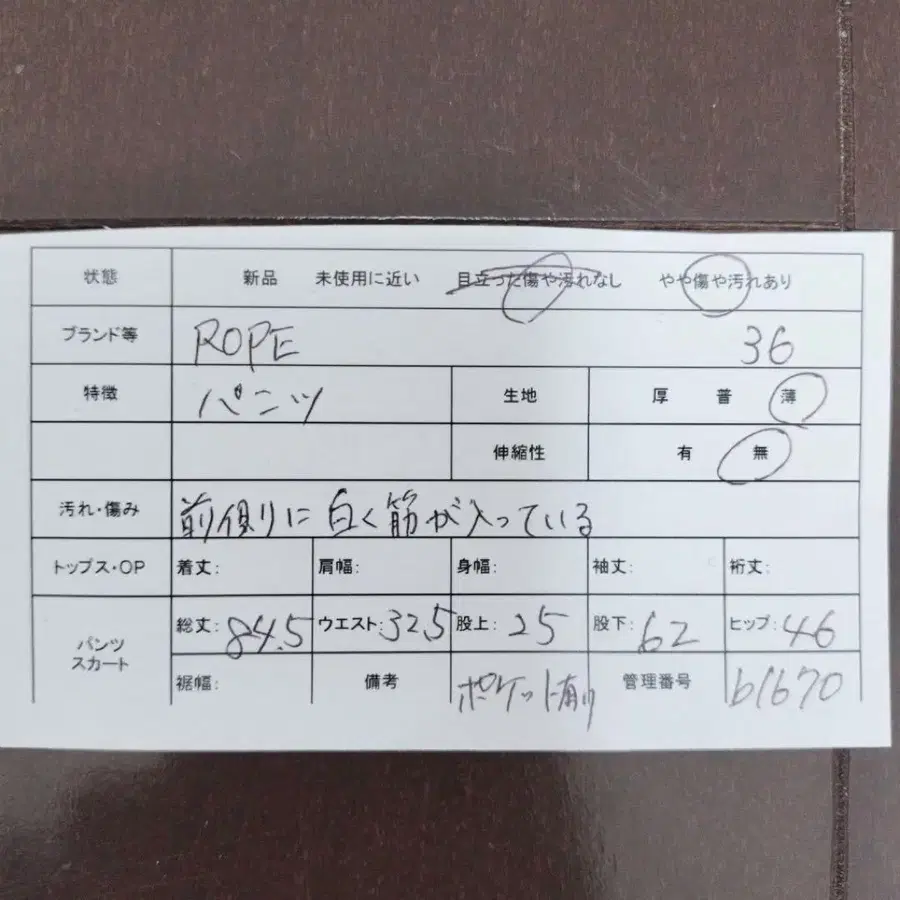 状態 新品 未使用に近い 目立った傷や汚れなし やや傷や汚れあり
ブランド等 ROPE 36
特徴 パンツ 生地 厚 普 薄
伸縮性 有 無
汚れ・傷み 前側りに白く筋が入っている
トップス・OP 着丈: 肩幅: 身幅: 袖丈: 裄丈:
パンツ スカート 総丈: 84.5 ウエスト: 32.5 股上: 25 股下: 62 ヒップ: 46
裾幅: 備考 ポケット有り 管理番号 b1670